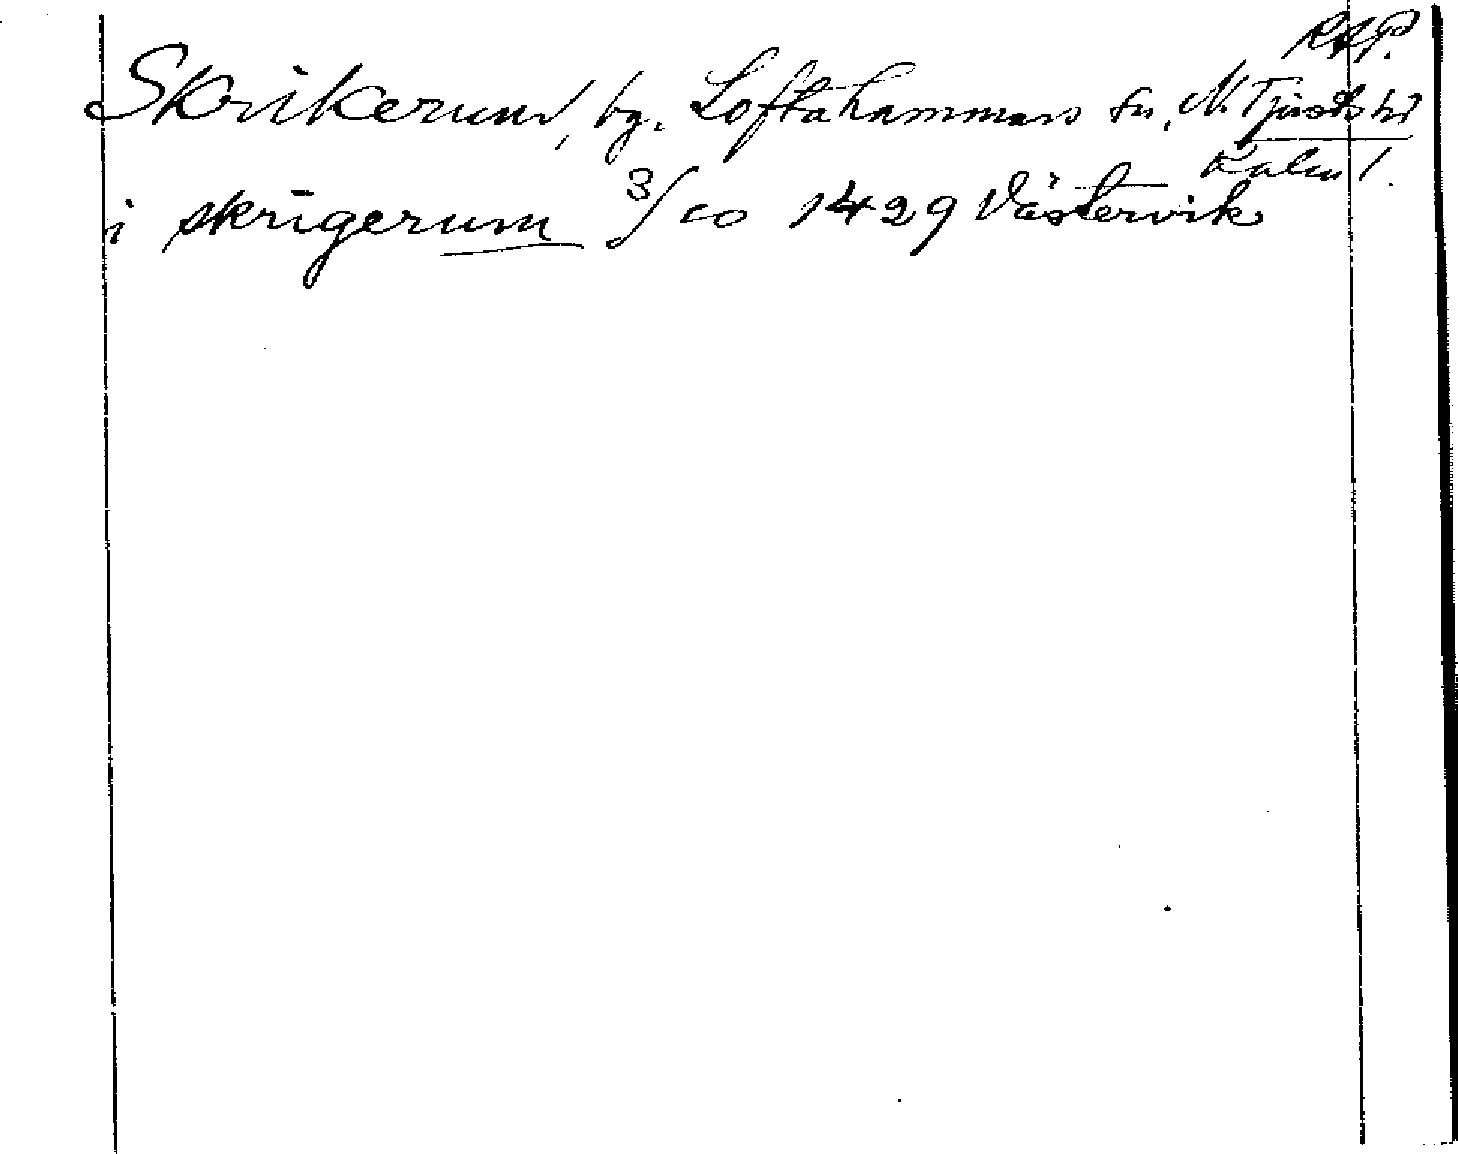 RAP.
Skrikerum, by. Loftahammars sn, N. Tjusts hd
Kalm l.
i skrigerum 3/10 1429 Västervik